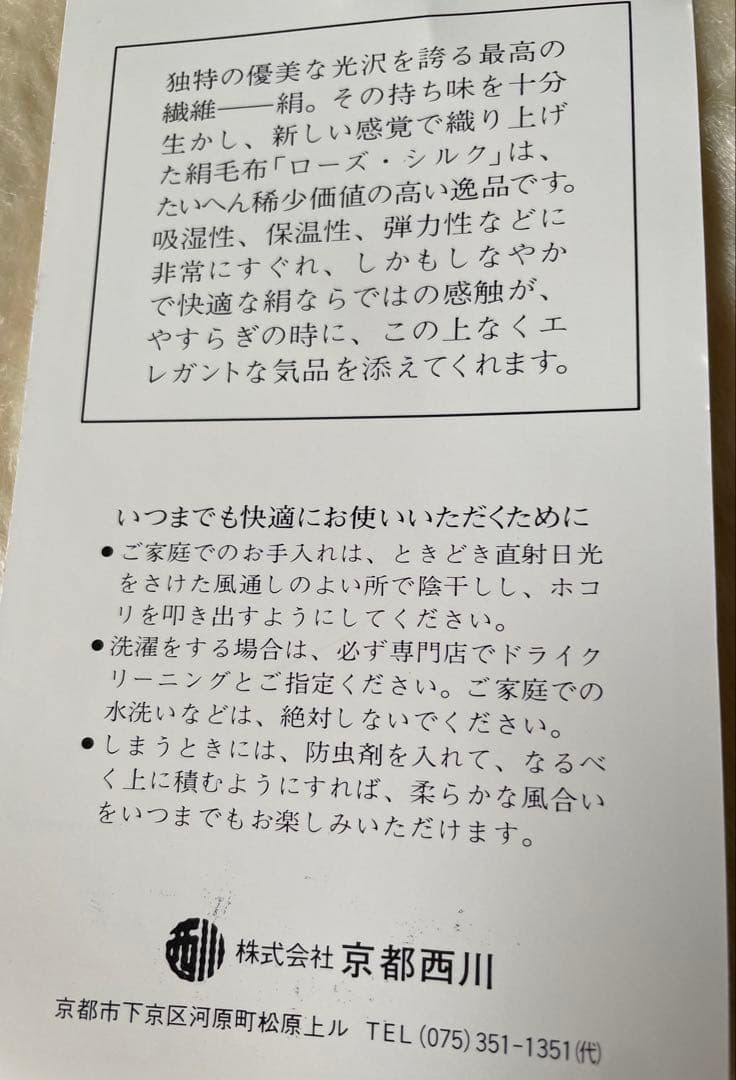 独特の優美な光沢を誇る最高の
繊維——絹。その持ち味を十分
生かし、新しい感覚で織り上げ
た絹毛布「ローズ・シルク」は、
たいへん稀少価値の高い逸品です。
吸湿性、保温性、弾力性などに
非常にすぐれ、しかもしなやか
で快適な絹ならではの感触が、
やすらぎの時に、この上なくエ
レガントな気品を添えてくれます。
いつまでも快適にお使いいただくために
●ご家庭でのお手入れは、ときどき直射日光
をさけた風通しのよい所で陰干しし、ホコ
リを叩き出すようにしてください。
●洗濯をする場合は、必ず専門店でドライク
リーニングとご指定ください。ご家庭での
水洗いなどは、絶対しないでください。
●しまうときには、防虫剤を入れて、なるべ
く上に積むようにすれば、柔らかな風合い
をいつまでもお楽しみいただけます。
西川 株式会社 京都西川
京都市下京区河原町松原上ル TEL(075)351-1351(代)